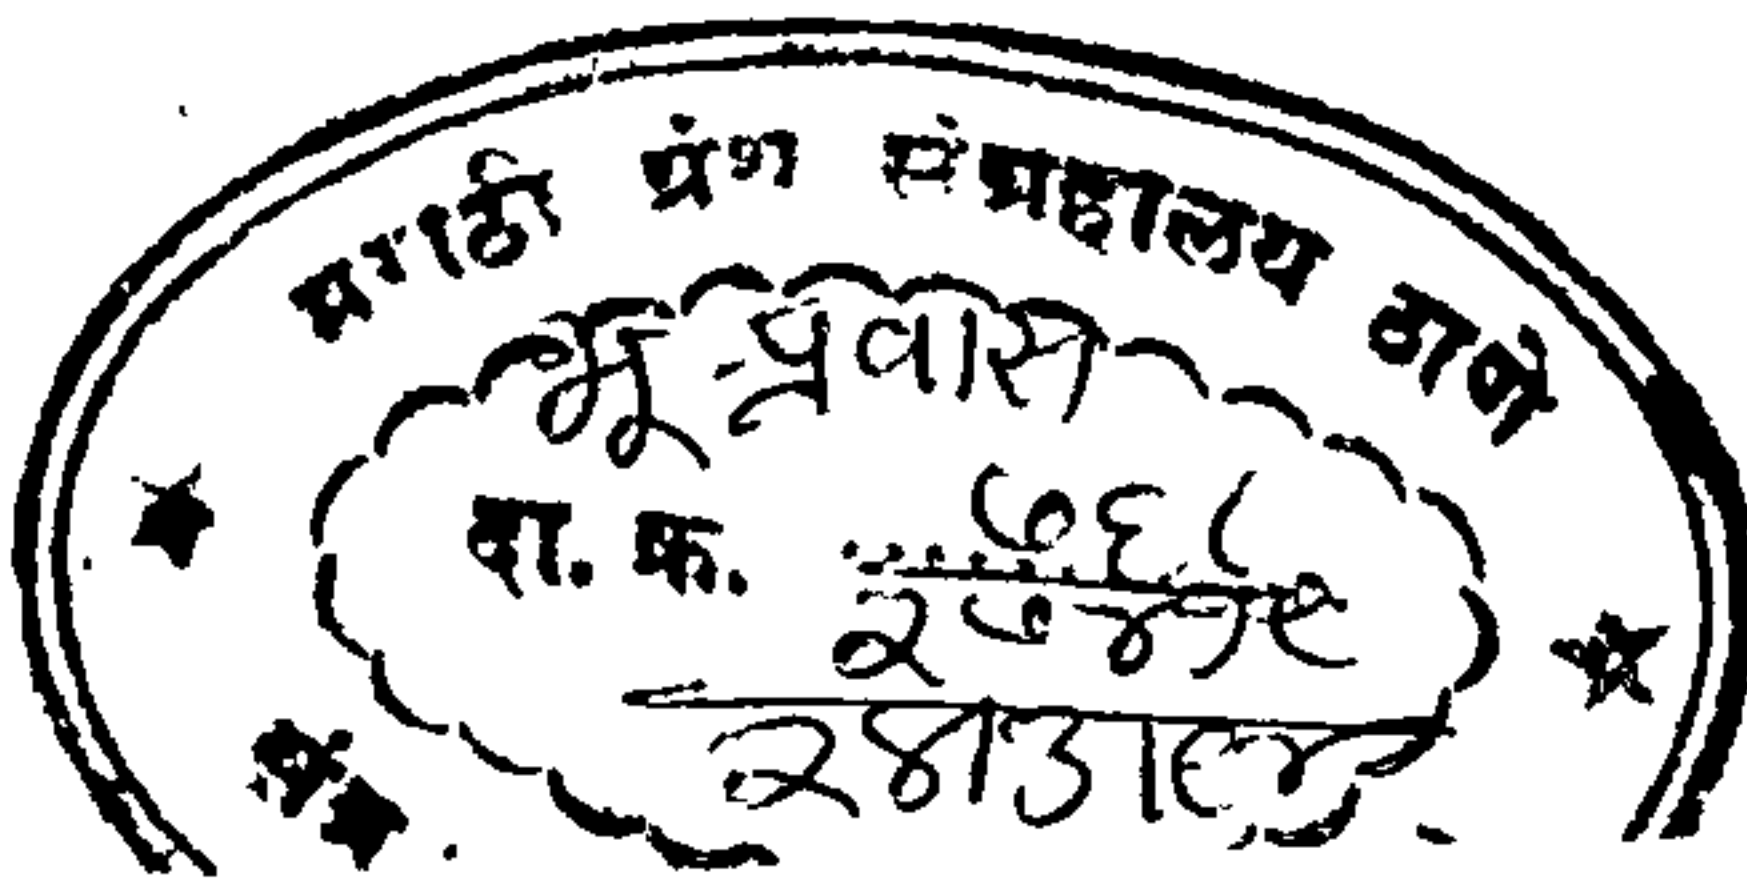 मराठी ग्रंथ संग्रहालय ठाणे
भू-प्रवास
दा. क्र. ७६८
२७४१९